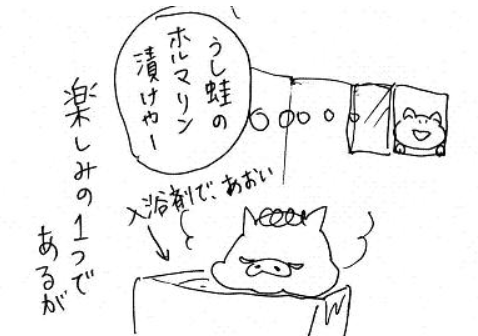 うし蛙の
ホルマリン
漬けやー
入浴剤で、あおい
楽しみの1つで
あるが